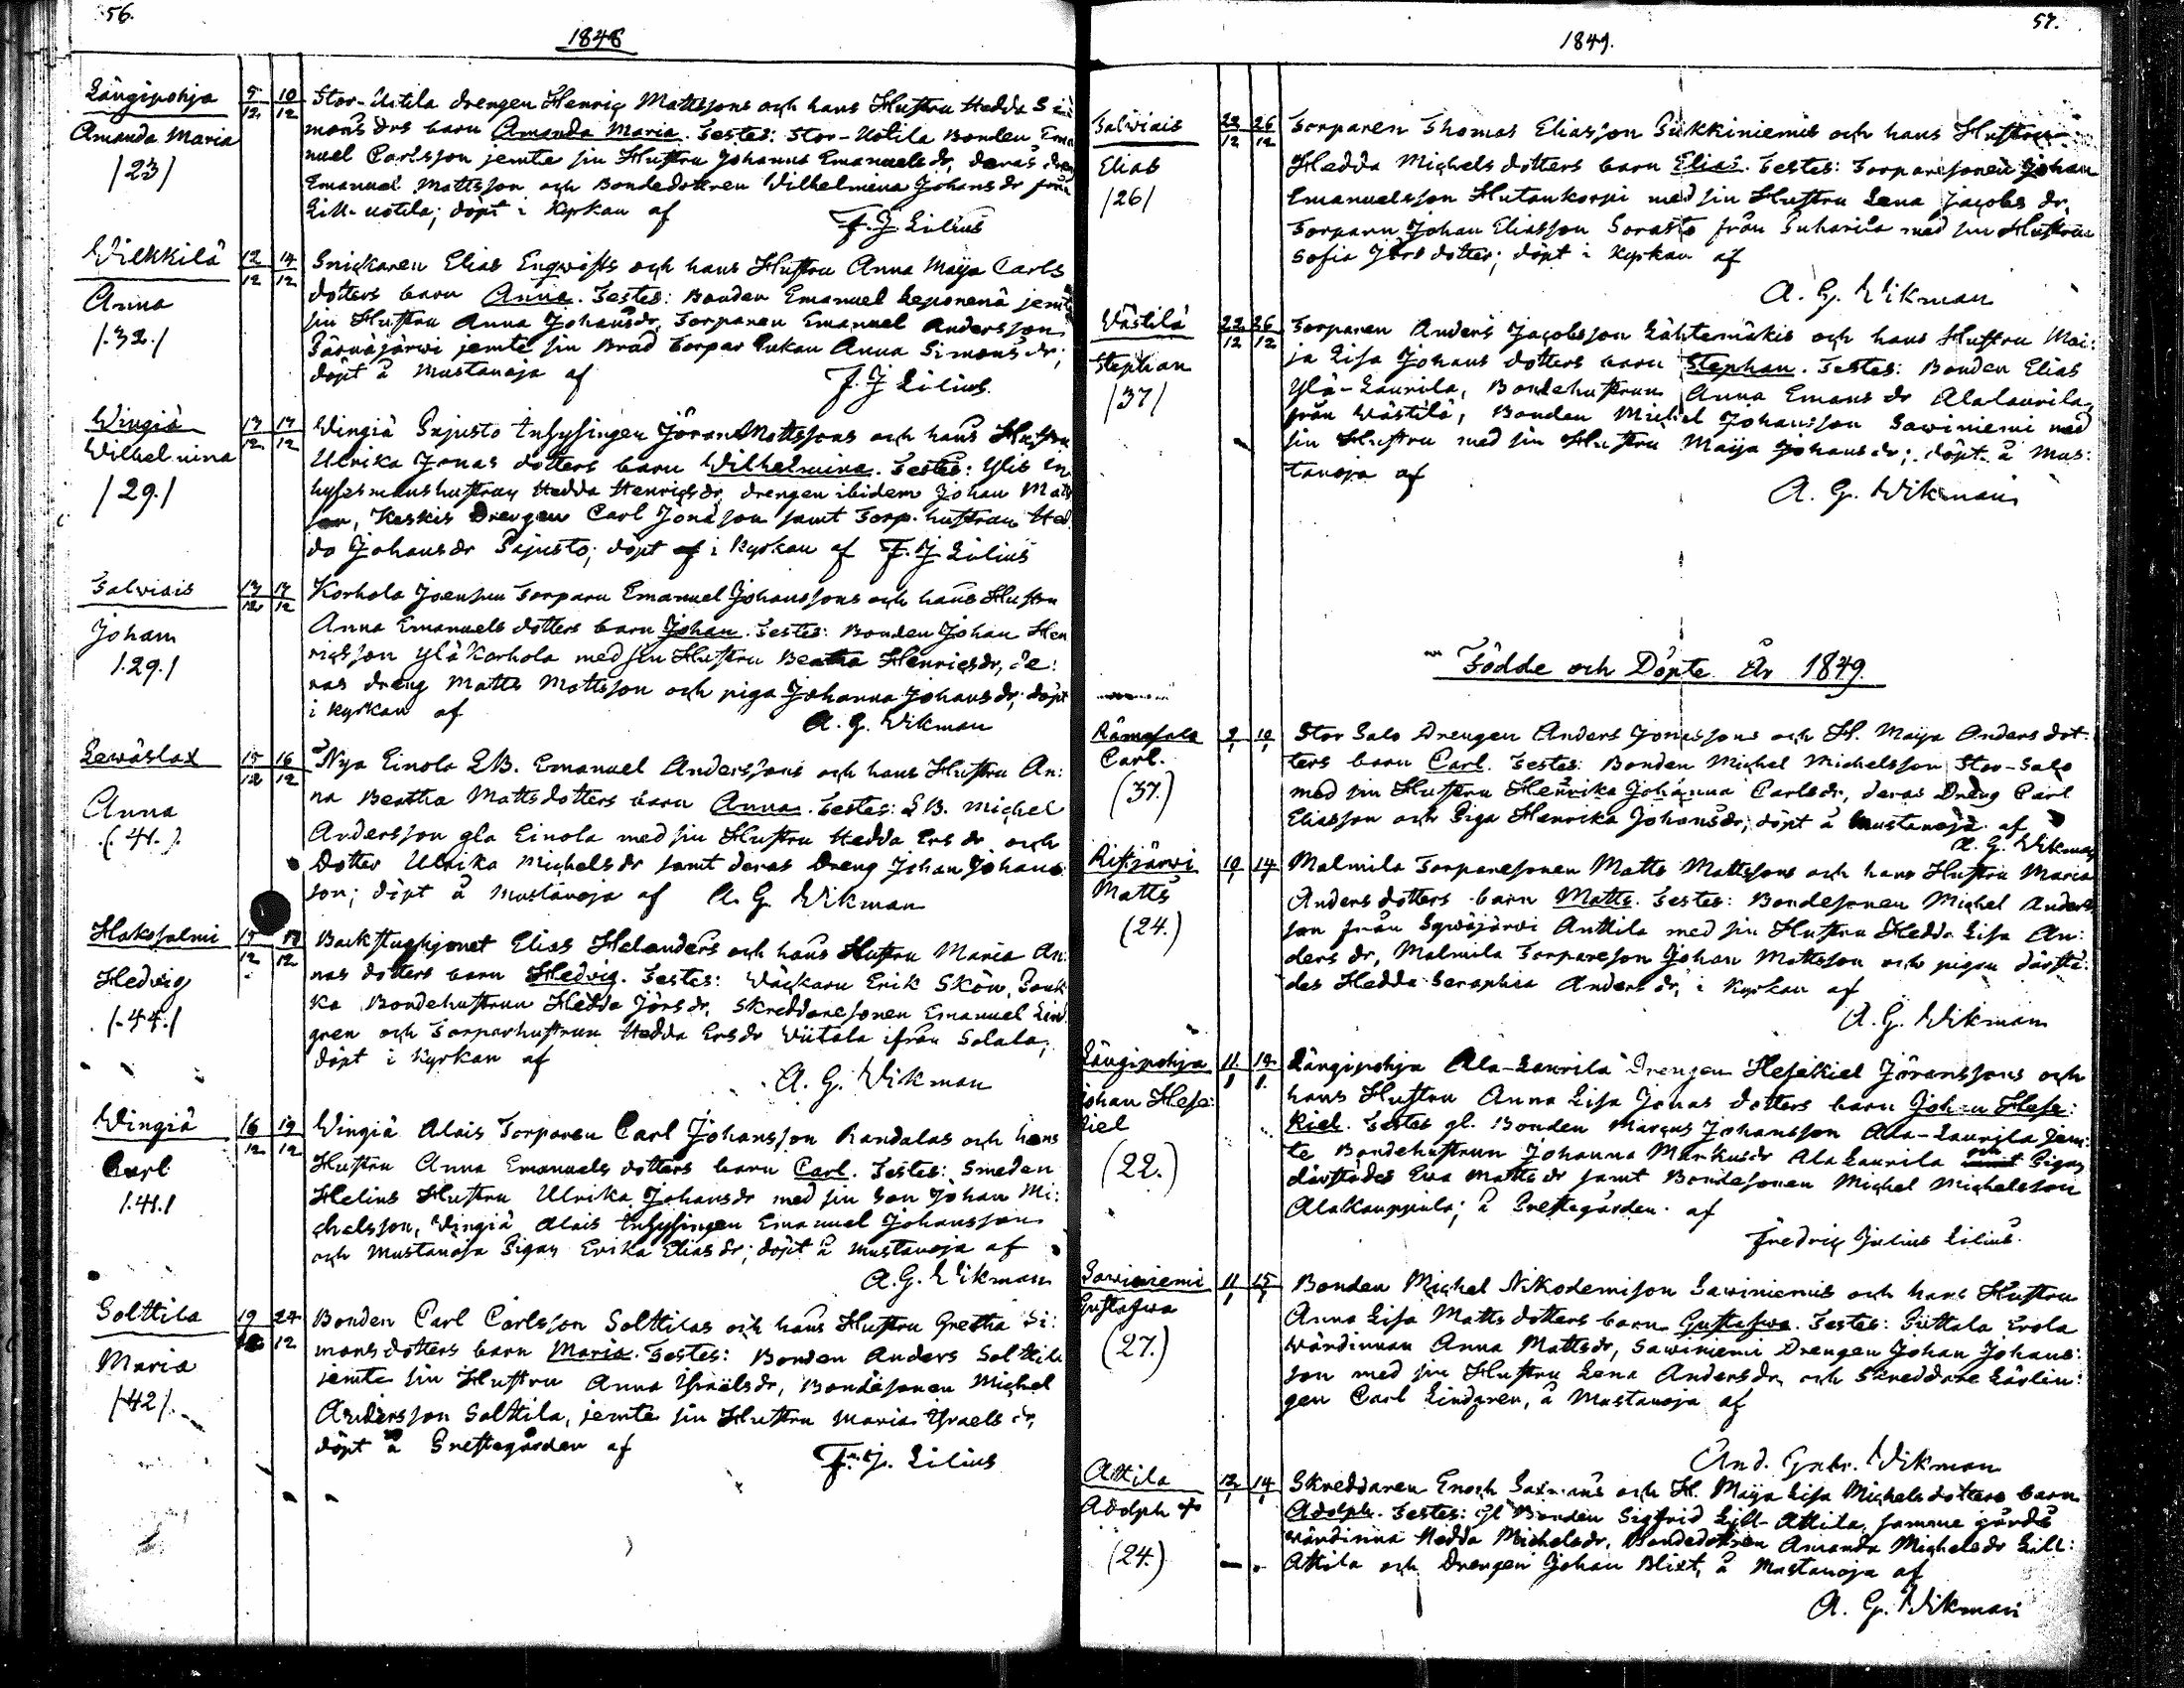 56.
1848
Längipohja 5/12 10/12 Stor-Uotila drengen Henric Mattssons och hans Hustru Hedda Si
Amanda Maria mons drs barn Amanda Maria. Testes: Stor-Uotila Bonden Ema
/23/ nuel Carlsson jemte sin Hustru Johanna Emanuels dr, deras dren
Emanuel Mattsson och Bondedottren Wilhelmina Johans dr från
Lill-uotila; döpt i Kyrkan af F. J. Lilius
Wilkkilä 12/12 14/12 Snickaren Elias Enqwists och hans Hustru Anna Maija Carls
Anna dotters barn Anna. Testes: Bonden Emanuel Leponenä jemte
/.32./ sin Hustru Anna Johansdr, Torparen Emanuel Andersson
Särnäjärwi jemte sin Brud Torpar Enkan Anna Simons dr;
döpt å Mustanoja af F. J Lilius.
Wingiä 13/12 17/12 Wingiä Pajusto Inhysingen Jöran Mattssons och hans Hustru
Wilhelmina Ulrika Jonas dotters barn Wilhelmina. Testes: Ylis In
/29./ hyses manshustrun Hedda Henricsdr, drengen ibidem Johan Matts
son, Keskis Drengen Carl Jonasson samt Torp. hustrun Hed
da Johansdr Pajusto; döpt af i Kyrkan af F. J. Lilius
Salwiais 13/12 17/12 Korhola Joensuu Torparn Emanuel Johanssons och hans Hustru
Johan Anna Emanuels dotters barn Johan. Testes: Bonden Johan Hen
/.29./ ricsson Yläkorhola med sin Hustru Beatha Henricsdr, de:
ras dreng Matts Mattsson och piga Johanna Johansdr; döpt
i Kyrkan af A. G. Wikman
Lewäslax 15/12 16/12 Nya Einola LB. Emanuel Anderssons och hans Hustru An:
Anna na Beatha Matts dotters barn Anna. Testes: LB. Michel
(.41.) Andersson gla Einola med sin Hustru Hedda Ers dr och
Dotter Ulrika Michels dr samt deras Dreng Johan Johans
son; döpt å Mustanoja af A. G. Wikman
Hakosalmi 15/12 17/12 Backstughjonet Elias Helanders och hans Hustru Maria An:
Hedvig nas dotters barn Hedvig. Testes: Wäckarn Erik Skön,
/.44./ ka Bondehustrun Hedda Jörs dr, Skreddaresonen Emanuel Lind
gren och Torparhustrun Hedda Ersdr Wiitala ifrån Salala;
döpt i Kyrkan af
A. G. Wikman
Wingiä 16/12 19/12 Wingiä Alais Torparen Carl Johansson Randalas och hans
Carl Hustru Anna Emanuels dotters barn Carl. Testes: Smeden
/.41./ Helins Hustru Ulrika Johansdr med sin Son Johan Mi:
chelsson, Wingiä Alais Inhysingen Emanuel Johansson
och Mustanoja Pigan Erika Elias dr; döpt å Mustanoja af
A. G. Wikman
Solttila 19/12 24/12 Bonden Carl Carlsson Solttilas och hans Hustru Gretha Si:
Maria mons dotters barn Maria. Testes: Bonden Anders Solttila
/42/. jemte sin Hustru Anna Israelsdr, Bondesonen Michel
Andersson Solttila, jemte sin Hustru Maria Israels dr,
döpt å Prestegården af F. J. Lilius
57.
1849.
Salwiais 22/12 26/12 Torparen Thomas Eliasson Sukkiniemis och hans Hustru
Elias Hedda Michels dotters barn Elias. Testes: Torparesonen Johan
/26/ Emanuelsson Hutankorpi med sin Hustru Lena Jacobs dr,
Torparn Johan Eliasson Sorasto från Suharila med sin Hustru
Sofia Jörs dotter; döpt i Kyrkan af
A. G. Wikman
Wästilä 22/12 26/12 Torparen Anders Jacobsson Lähtemäkis och hans Hustru Mai:
Stephan ja Lisa Johans dotters barn Stephan. Testes: Bonden Elias
/37/ Ylä-Laurila, Bondehustrun Anna Emans dr Alalaurila
från Wästilä, Bonden Michel Johansson Sawiniemi med
sin Hustru med sin Hustru Maija Johans dr; döpt å Mus:
tanoja af
A. G. Wikman
Födde och Döpte År 1849.
Rämsale 9/1 10/1 Stor Salo Drengen Anders Jonassons och H. Maija Anders dot:
Carl. ters barn Carl. Testes: Bonden Michel Michelsson Stor-Salo
(37.) med sin Hustru Henrika Johanna Carlsdr, deras Dreng Carl
Eliasson och Piga Henrika Johansdr; döpt å Mustanoja af
A. G. Wikman
Ristjärwi 10/1 14/1 Malmila Torparesonen Matts Mattssons och hans Hustru Maria
Matts Anders dotters barn Matts. Testes: Bondesonen Michel Anders
(24.) son från Sywäjärwi Anttila med sin Hustru Hedda Lisa An:
ders dr, Malmila Torpareson Johan Mattsson och pigan därstä:
des Hedda Seraphia Anders dr, i Kyrkan af
A. G. Wikman
Längipohja 11/1 14/1 Längipohja Ala-Laurila Drengen Hesekiel Jöranssons och
Johan Hese: hans Hustru Anna Lisa Jonas dotters barn Johan Hese:
kiel kiel. Testes gl. Bonden Marcus Johansson Ala-Laurila jem:
(22.) te Bondehustrun Johanna Markusdr AlaLaurila och Pigan
därstädes Ewa Mattsdr samt Bondesonen Michel Michelsson
Alakauppila; å Prestegården af
Fredric Julius Lilius.
Sawiniemi 11/1 15/1 Bonden Michel Nikodemison Sawiniemis och hans Hustru
Gustafwa Anna Lisa Matts dotters barn Gustafwa. Testes: Erola
(27.) wärdinnan Anna Mattsdr, Sawiniemi Drengen Johan Johans:
son med sin Hustru Lena Andersdr och Skreddare Lärlin:
gen Carl Lindgren, å Mustanoja af
And. Gabr. Wikman
Attila 12/1 14/1 Skreddaren Enoch Saxmans och H. Maija Lisa Michelsdotters barn
Adolph Adolph. Testes: Gl Bonden Sigfrid Lill-Attila, samme gårds
(24.) wärdinna Hedda Michelsdr, Bondedottren Amanda Michelsdr Lill:
Attila och Drengen Johan Blixt, å Mustanoja af
A. G. Wikman